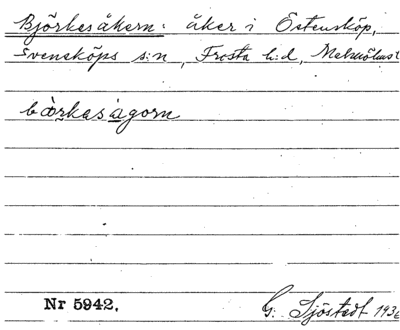 Björkesåkern: åker i Östensköp,
Svensköps s:n, Frosta h:d, Malmöhus l
bòrkasågorn
Nr 5942.
G. Sjöstedt 1936